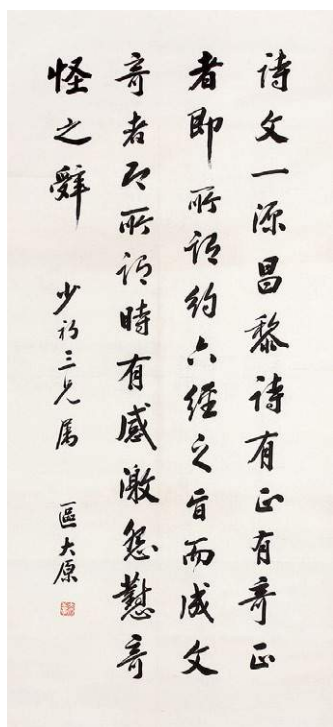 詩文一源昌黎詩有正有奇正
者即所謂約六經之旨而成文
奇者即所謂時有感激怨懟奇
怪之辭
少初三兄属
區大原